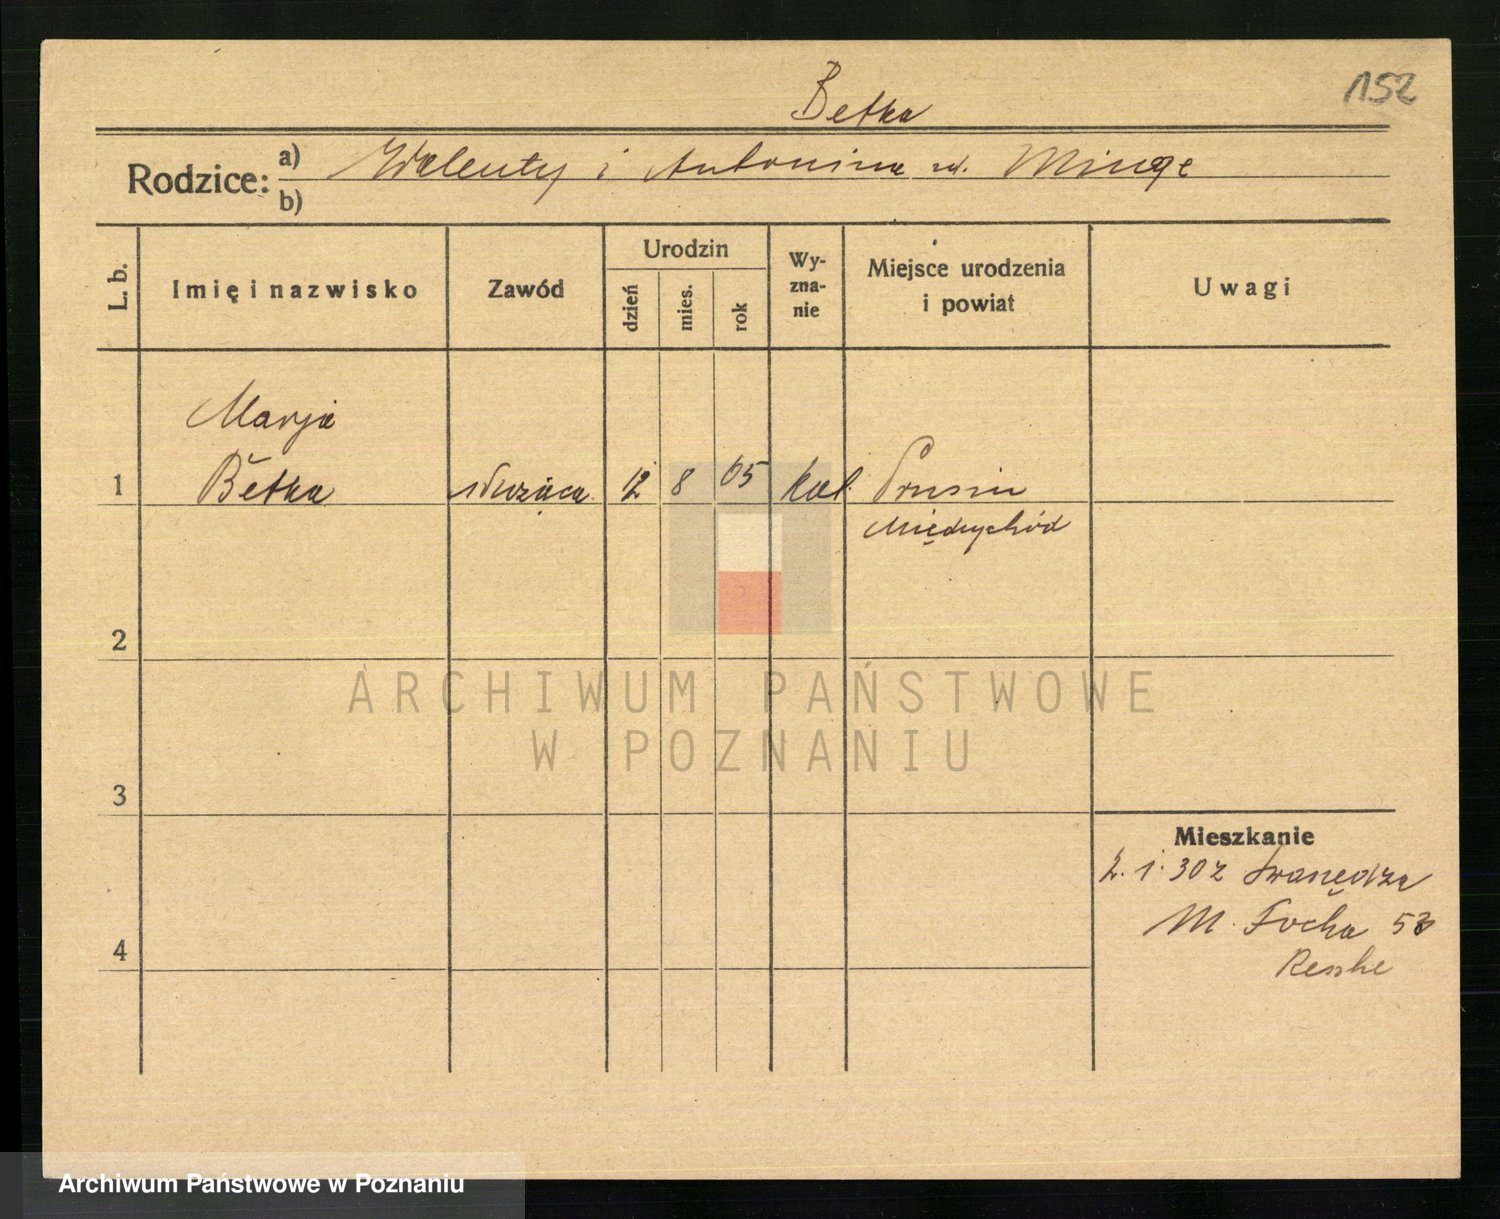 152
Betka
Rodzice: a) Walenty i Antonina ur. Minge
b)
L. b.
Imię i nazwisko
Zawód
Urodzin
dzień
mies.
rok
Wy-
zna-
nie
Miejsce urodzenia
i powiat
Uwagi
Marja
1 Betka służąca 12 8 05 kat. Prusim
Międzychód
2
ARCHIWUM PAŃSTWOWE
W POZNANIU
3
Mieszkanie
2. 1. 30 z Swarzędza
M. Focha
4
Archiwum Państwowe w Poznaniu